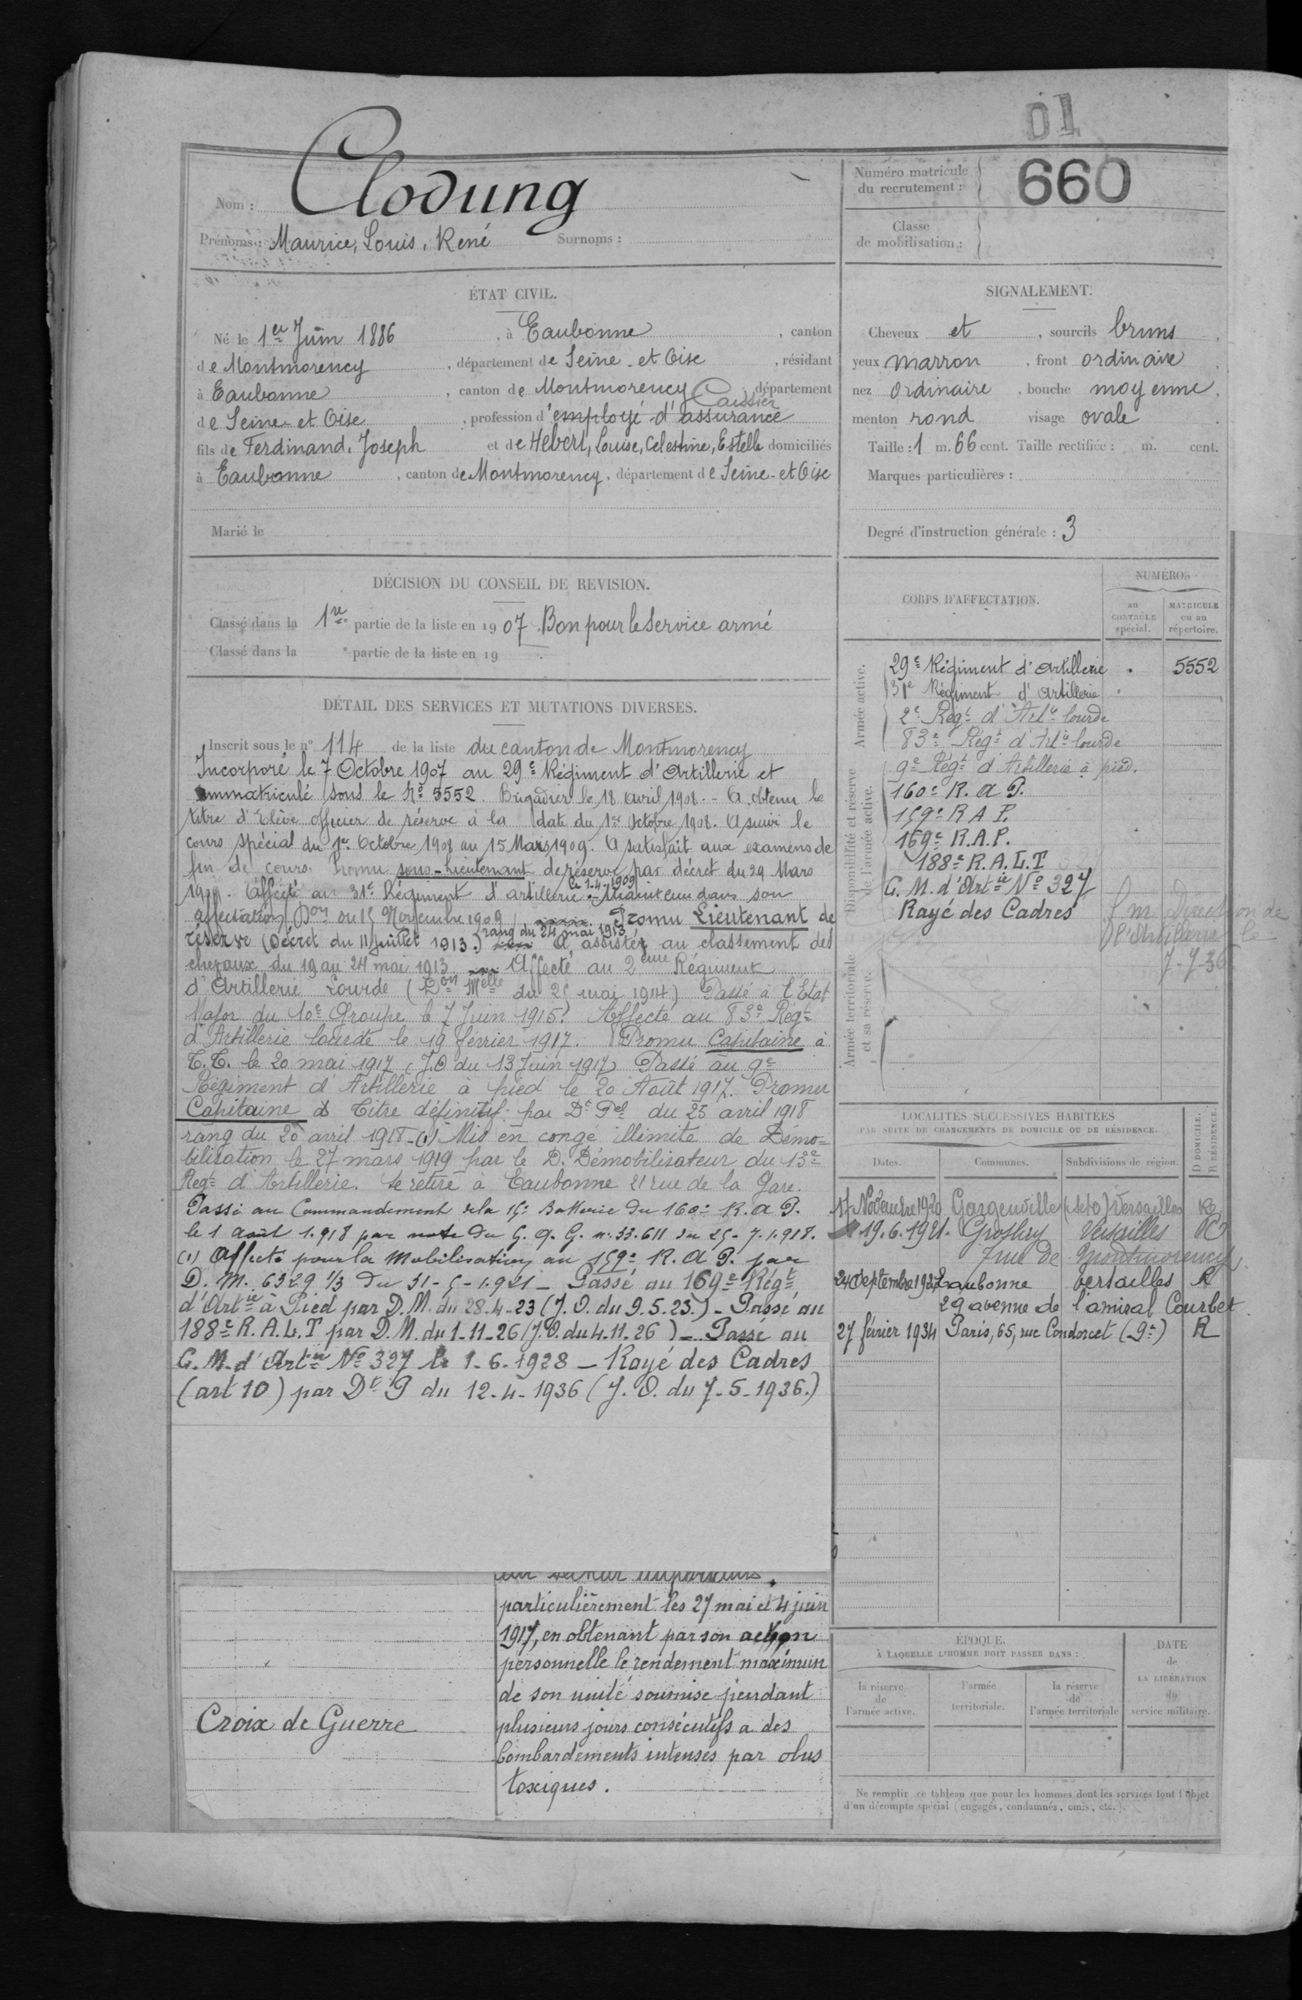 01
Numéro matricule
du recrutement :
660
Nom : Clodung
Prénoms : Maurice, Louis, René Surnoms :
Classe
de mobilisation :
ÉTAT CIVIL.
Né le 1er Juin 1886, à Eaubonne, canton
de Montmorency, département de Seine-et-Oise, résidant
à Eaubonne, canton de Montmorency, département
Caissier
de Seine-et-Oise, profession d'employé d'assurance
fils de Ferdinand, Joseph et de Hébert, Louise, Célestine, Estelle domiciliés
à Eaubonne, canton de Montmorency, département de Seine-et-Oise
Marié le
SIGNALEMENT.
Cheveux et, sourcils bruns,
yeux marron, front ordinaire
nez ordinaire, bouche moyenne,
menton rond visage ovale
Taille : 1 m. 66 cent. Taille rectifiée : m. cent.
Marques particulières :
Degré d'instruction générale : 3
DÉCISION DU CONSEIL DE REVISION.
Classé dans la 1re partie de la liste en 1907. Bon pour le service armé
Classé dans la partie de la liste en 19
DÉTAIL DES SERVICES ET MUTATIONS DIVERSES.
Inscrit sous le n° 114 de la liste du canton de Montmorency
Incorporé le 7 Octobre 1907 au 29e Régiment d'Artillerie et
immatriculé sous le No 5552. Brigadier le 18 avril 1908. - A obtenu le
titre d'Elève officier de réserve à la date du 1er Octobre 1908. A suivi le
cours spécial du 1er Octobre 1908 au 15 Mars 1909. A satisfait aux examens de
fin de cours. Promu sous-Lieutenant de réserve par décret du 29 Mars
1909. Affecté au 31e Régiment d'artillerie le 1-4-1909 Maintenu dans son
affectation (Don du 15 Novembre 1909) Promu Lieutenant de
réserve (Décret du 11 juillet 1913.) rang du 24 mai 1913 A assisté au classement des
chevaux du 19 au 24 mai 1913 Affecté au 2ème Régiment
d'Artillerie Lourde (Don Melle du 25 mai 1914) Passé à l'Etat
Major du 10e Groupe le 7 Juin 1915. Affecté au 83e Régt
d'Artillerie lourde le 19 février 1917. Promu Capitaine à
T.T. le 20 mai 1917 (J.O du 13 Juin 1917) Passé au 9e
Régiment d'Artillerie à pied le 20 Août 1917. Promu
Capitaine à Titre définitif par Dt Pel du 25 avril 1918
rang du 20 avril 1918 - (1) Mis en congé illimité de Démo-
bilisation le 27 mars 1919 par le D. Démobilisateur du 13e
Regt d'Artillerie. Se retire à Eaubonne 21 rue de la Gare.
Passé au Commandement de la 15e Batterie du 160e R.A.P.
le 1 août 1.918 par note du G.Q.G. n. 33.611 du 25-7-1.918.
(1) Affecté pour la Mobilisation au 159e R.A.P. par
D.M. 6329 1/3 du 31-5-1.921 - Passé au 169e Régt
d'Artie à Pied par D.M. du 28.4-23 (J.O. du 9.5.23.) - Passé au
188e R.A.L.T par D.M. du 1-11-26 (J.O. du 4.11.26) - Passé au
C.M. d'Artie No 327 le 1-6-1928 - Rayé des Cadres
(art 10) par Dt P du 12-4-1936 (J.O. du 7-5-1936.)
particulièrement les 27 mai et 4 juin
1917, en obtenant par son action
personnelle le rendement maximum
de son unité soumise pendant
Croix de Guerre
plusieurs jours consécutifs à des
bombardements intenses par obus
toxiques.
CORPS D'AFFECTATION.
NUMÉROS
au
CONTRÔLE
spécial.
MATRICULE
ou au
répertoire.
Armée active.
Disponibilité et réserve
de l'armée active.
Armée territoriale
et sa réserve.
29e Régiment d'Artillerie 5552
31e Régiment d'Artillerie
2e Régt d'Artie lourde
83e Régt d'Artie lourde
9e Régt d'Artillerie à pied.
160e R.A.P.
159e R.A.P.
169e R.A.P.
188e R.A.L.T
C.M. d'Artie No 327
Rayé des Cadres
Direction de
l'Artillerie le
7-7-36
LOCALITÉS SUCCESSIVES HABITÉES
PAR SUITE DE CHANGEMENTS DE DOMICILE OU DE RÉSIDENCE.
Dates. Communes. Subdivisions de région. D DOMICILE. R RÉSIDENCE.
17 Novembre 1920 Gargenville (S et O) Versailles R
19.6.1921. Groslay Versailles R
rue de Montmorency.
24 Septembre 1927 Eaubonne Versailles R
29 avenue de l'amiral Courbet.
27 février 1934 Paris, 65, rue Condorcet (9e) R
ÉPOQUE
À LAQUELLE L'HOMME DOIT PASSER DANS :
la réserve
de
l'armée active.
l'armée
territoriale.
la réserve
de
l'armée territoriale
DATE
de
LA LIBÉRATION
du
service militaire.
Ne remplir ce tableau que pour les hommes dont les services font l'objet
d'un décompte spécial (engagés, condamnés, omis, etc.).